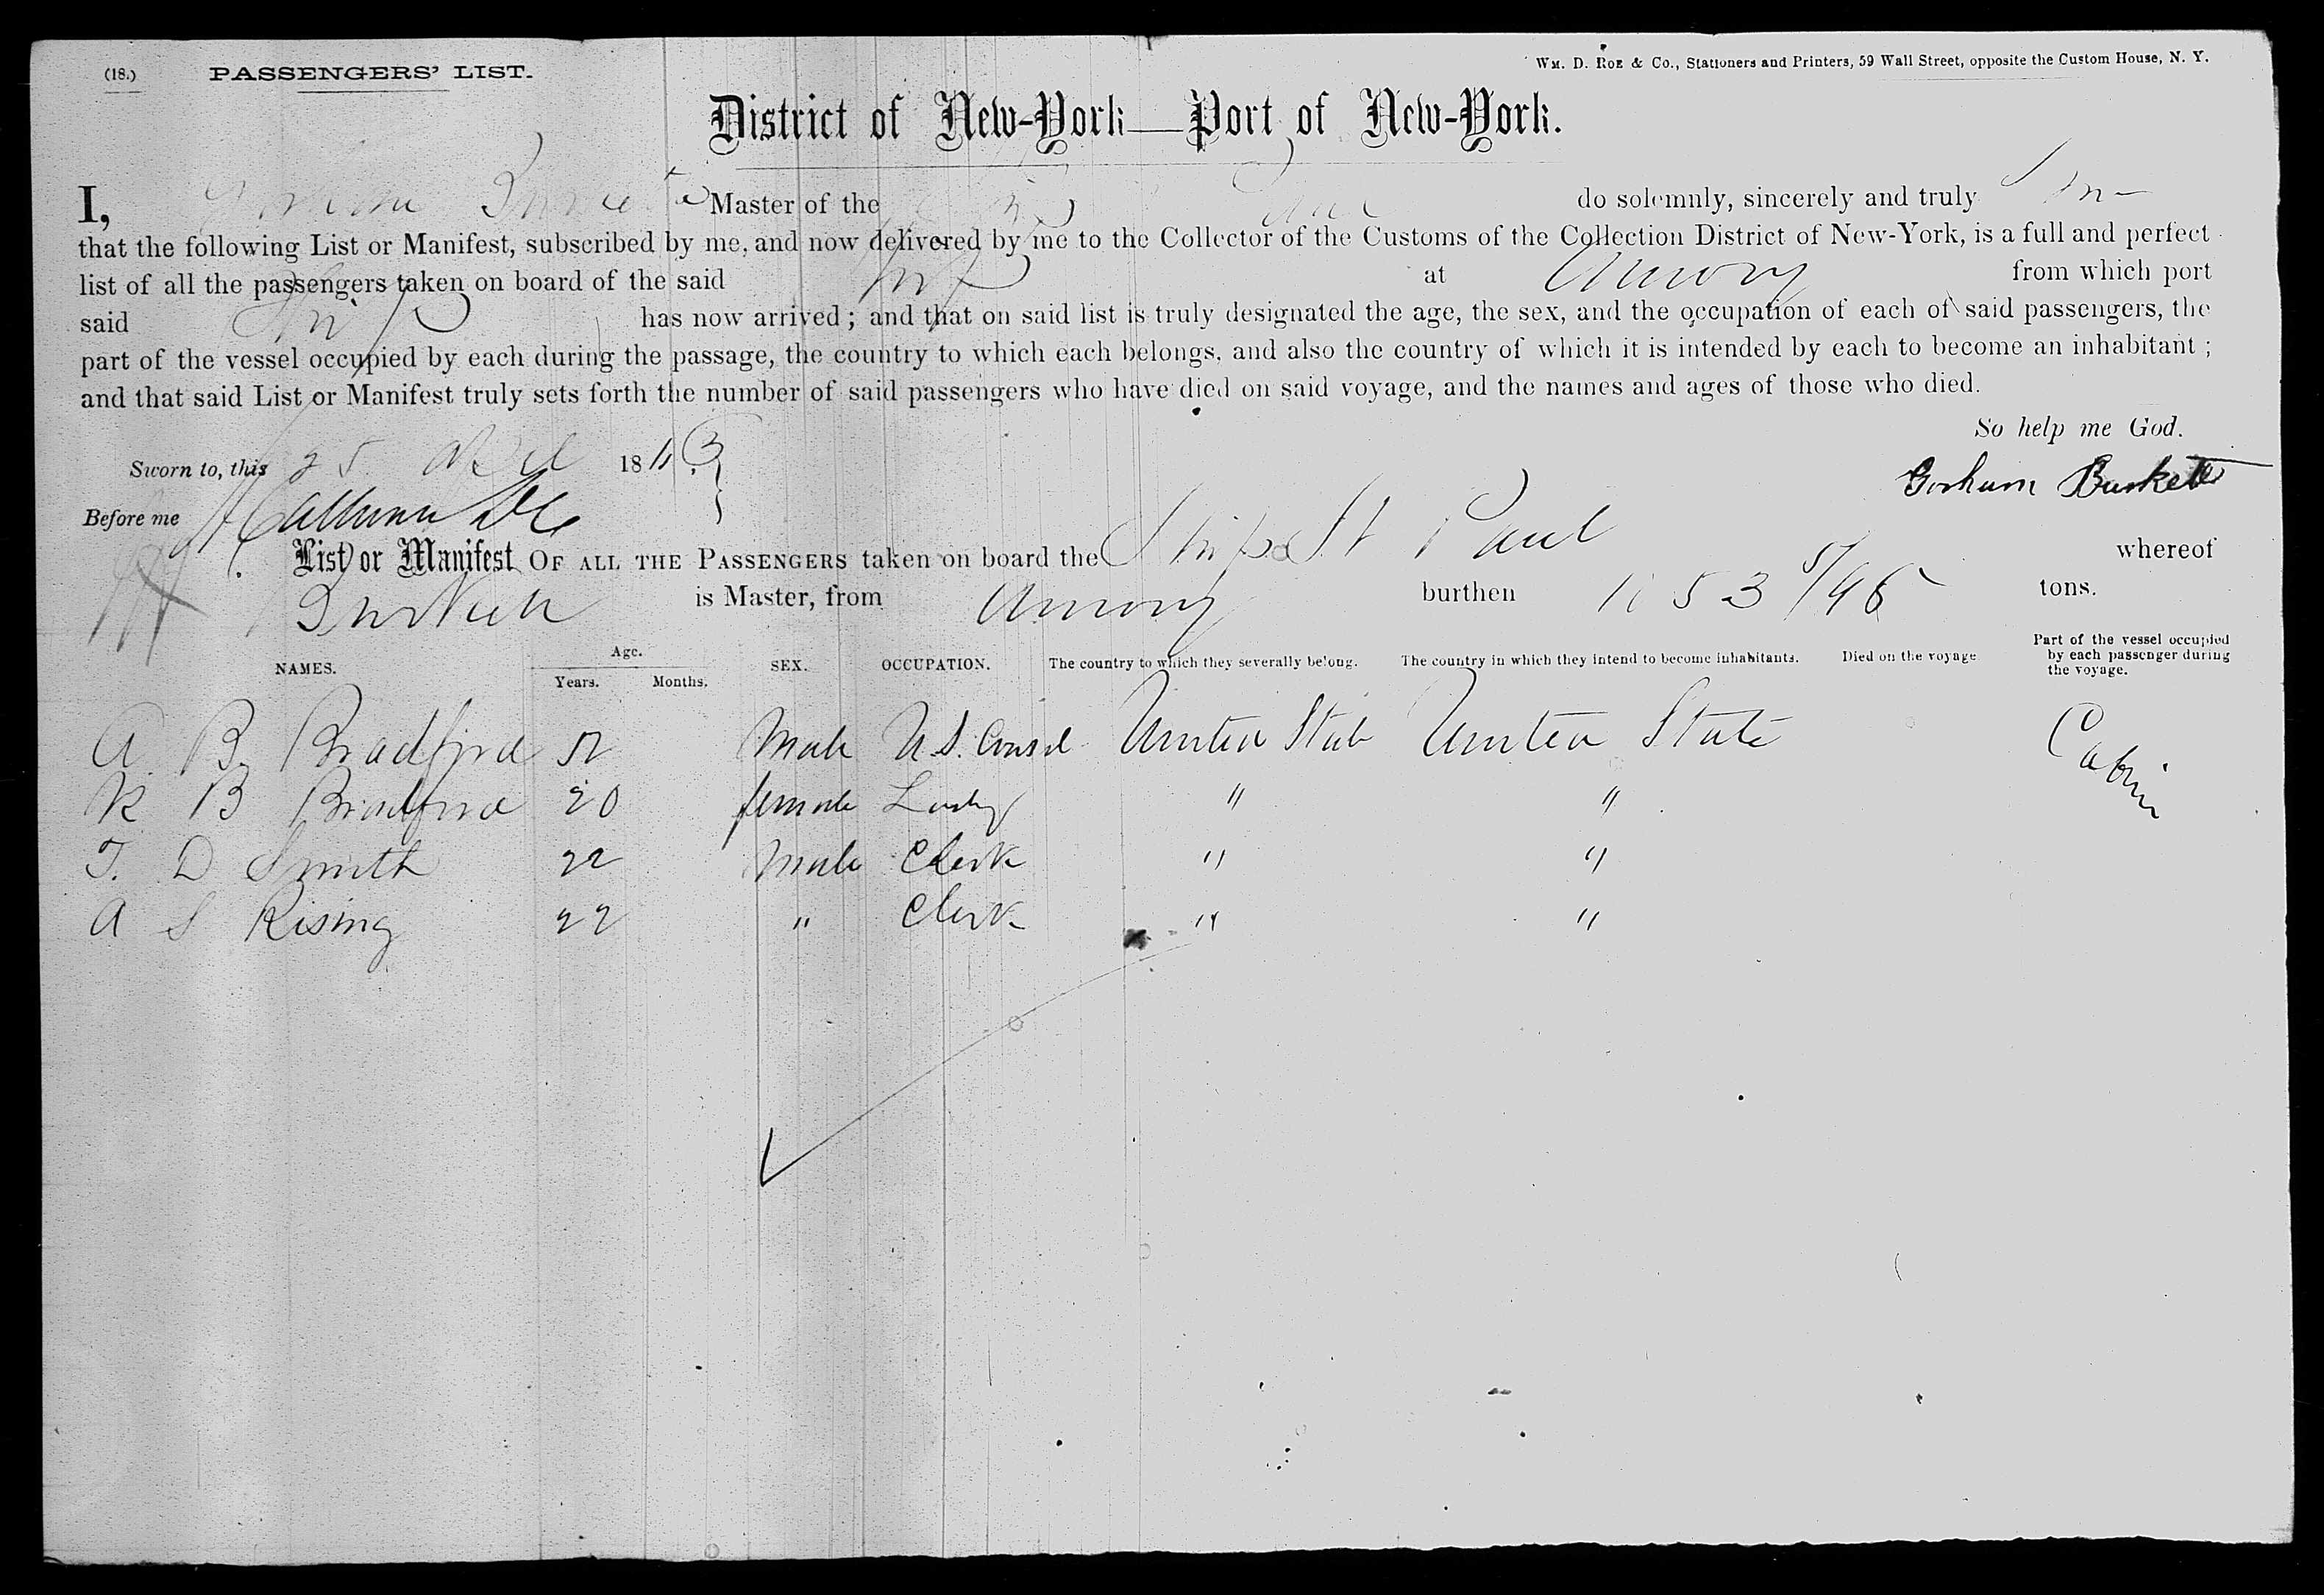 (18.) PASSENGERS' LIST.
Wm. D. Roe & Co., Stationers and Printers, 59 Wall Street, opposite the Custom House, N. Y.
District of New-York—Port of New-York.
I, Master of the do solemnly, sincerely and truly
that the following List or Manifest, subscribed by me, and now delivered by me to the Collector of the Customs of the Collection District of New-York, is a full and perfect
list of all the passengers taken on board of the said Ship at Amoy from which port
said Ship has now arrived ; and that on said list is truly designated the age, the sex, and the occupation of each of said passengers, the
part of the vessel occupied by each during the passage, the country to which each belongs, and also the country of which it is intended by each to become an inhabitant ;
and that said List or Manifest truly sets forth the number of said passengers who have died on said voyage, and the names and ages of those who died.
So help me God.
Sworn to, this 25 April 18
Gorham Burkett
Before me
List or Manifest OF ALL THE PASSENGERS taken on board the Ship St Paul whereof
is Master, from Amoy burthen tons.
NAMES. Age. Years. Months. SEX. OCCUPATION. The country to which they severally belong. The country in which they intend to become inhabitants. Died on the voyage Part of the vessel occupied by each passenger during the voyage.
A B Bradford 52 Male U.S. Consul United State United State Cabin
K B Bradford 20 female Lady " "
T. D Smith 22 Male Clerk " "
A S Rising 22 " Clerk " "